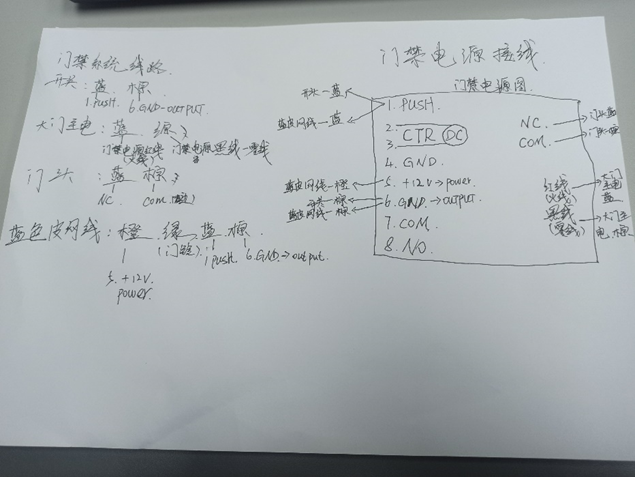 门禁系统线路.
开关:蓝 棕
1.PUSH. 6.GND-OUTPUT
大门主电:蓝 绿
门禁电源红线 门禁电源黑线-零线
(火线)
门头:蓝 棕
NC. COM.
蓝色皮网线:橙 绿 蓝 棕
(门锁) 1.push. 6.GND→output.
5.+12V.
power.
门禁电源接线
门禁电源图
开关-蓝
蓝皮网线-蓝
1.PUSH.
2.
CTR DC
3.
4.GND.
蓝皮网线-橙
5.+12V→power
开关-棕
蓝皮网线-棕
6.GND.→OUTPUT.
7.COM.
8.NO.
NC.
COM.
红线
(火线)
黑线
(零线)
大门主电 蓝
大门主电.棕